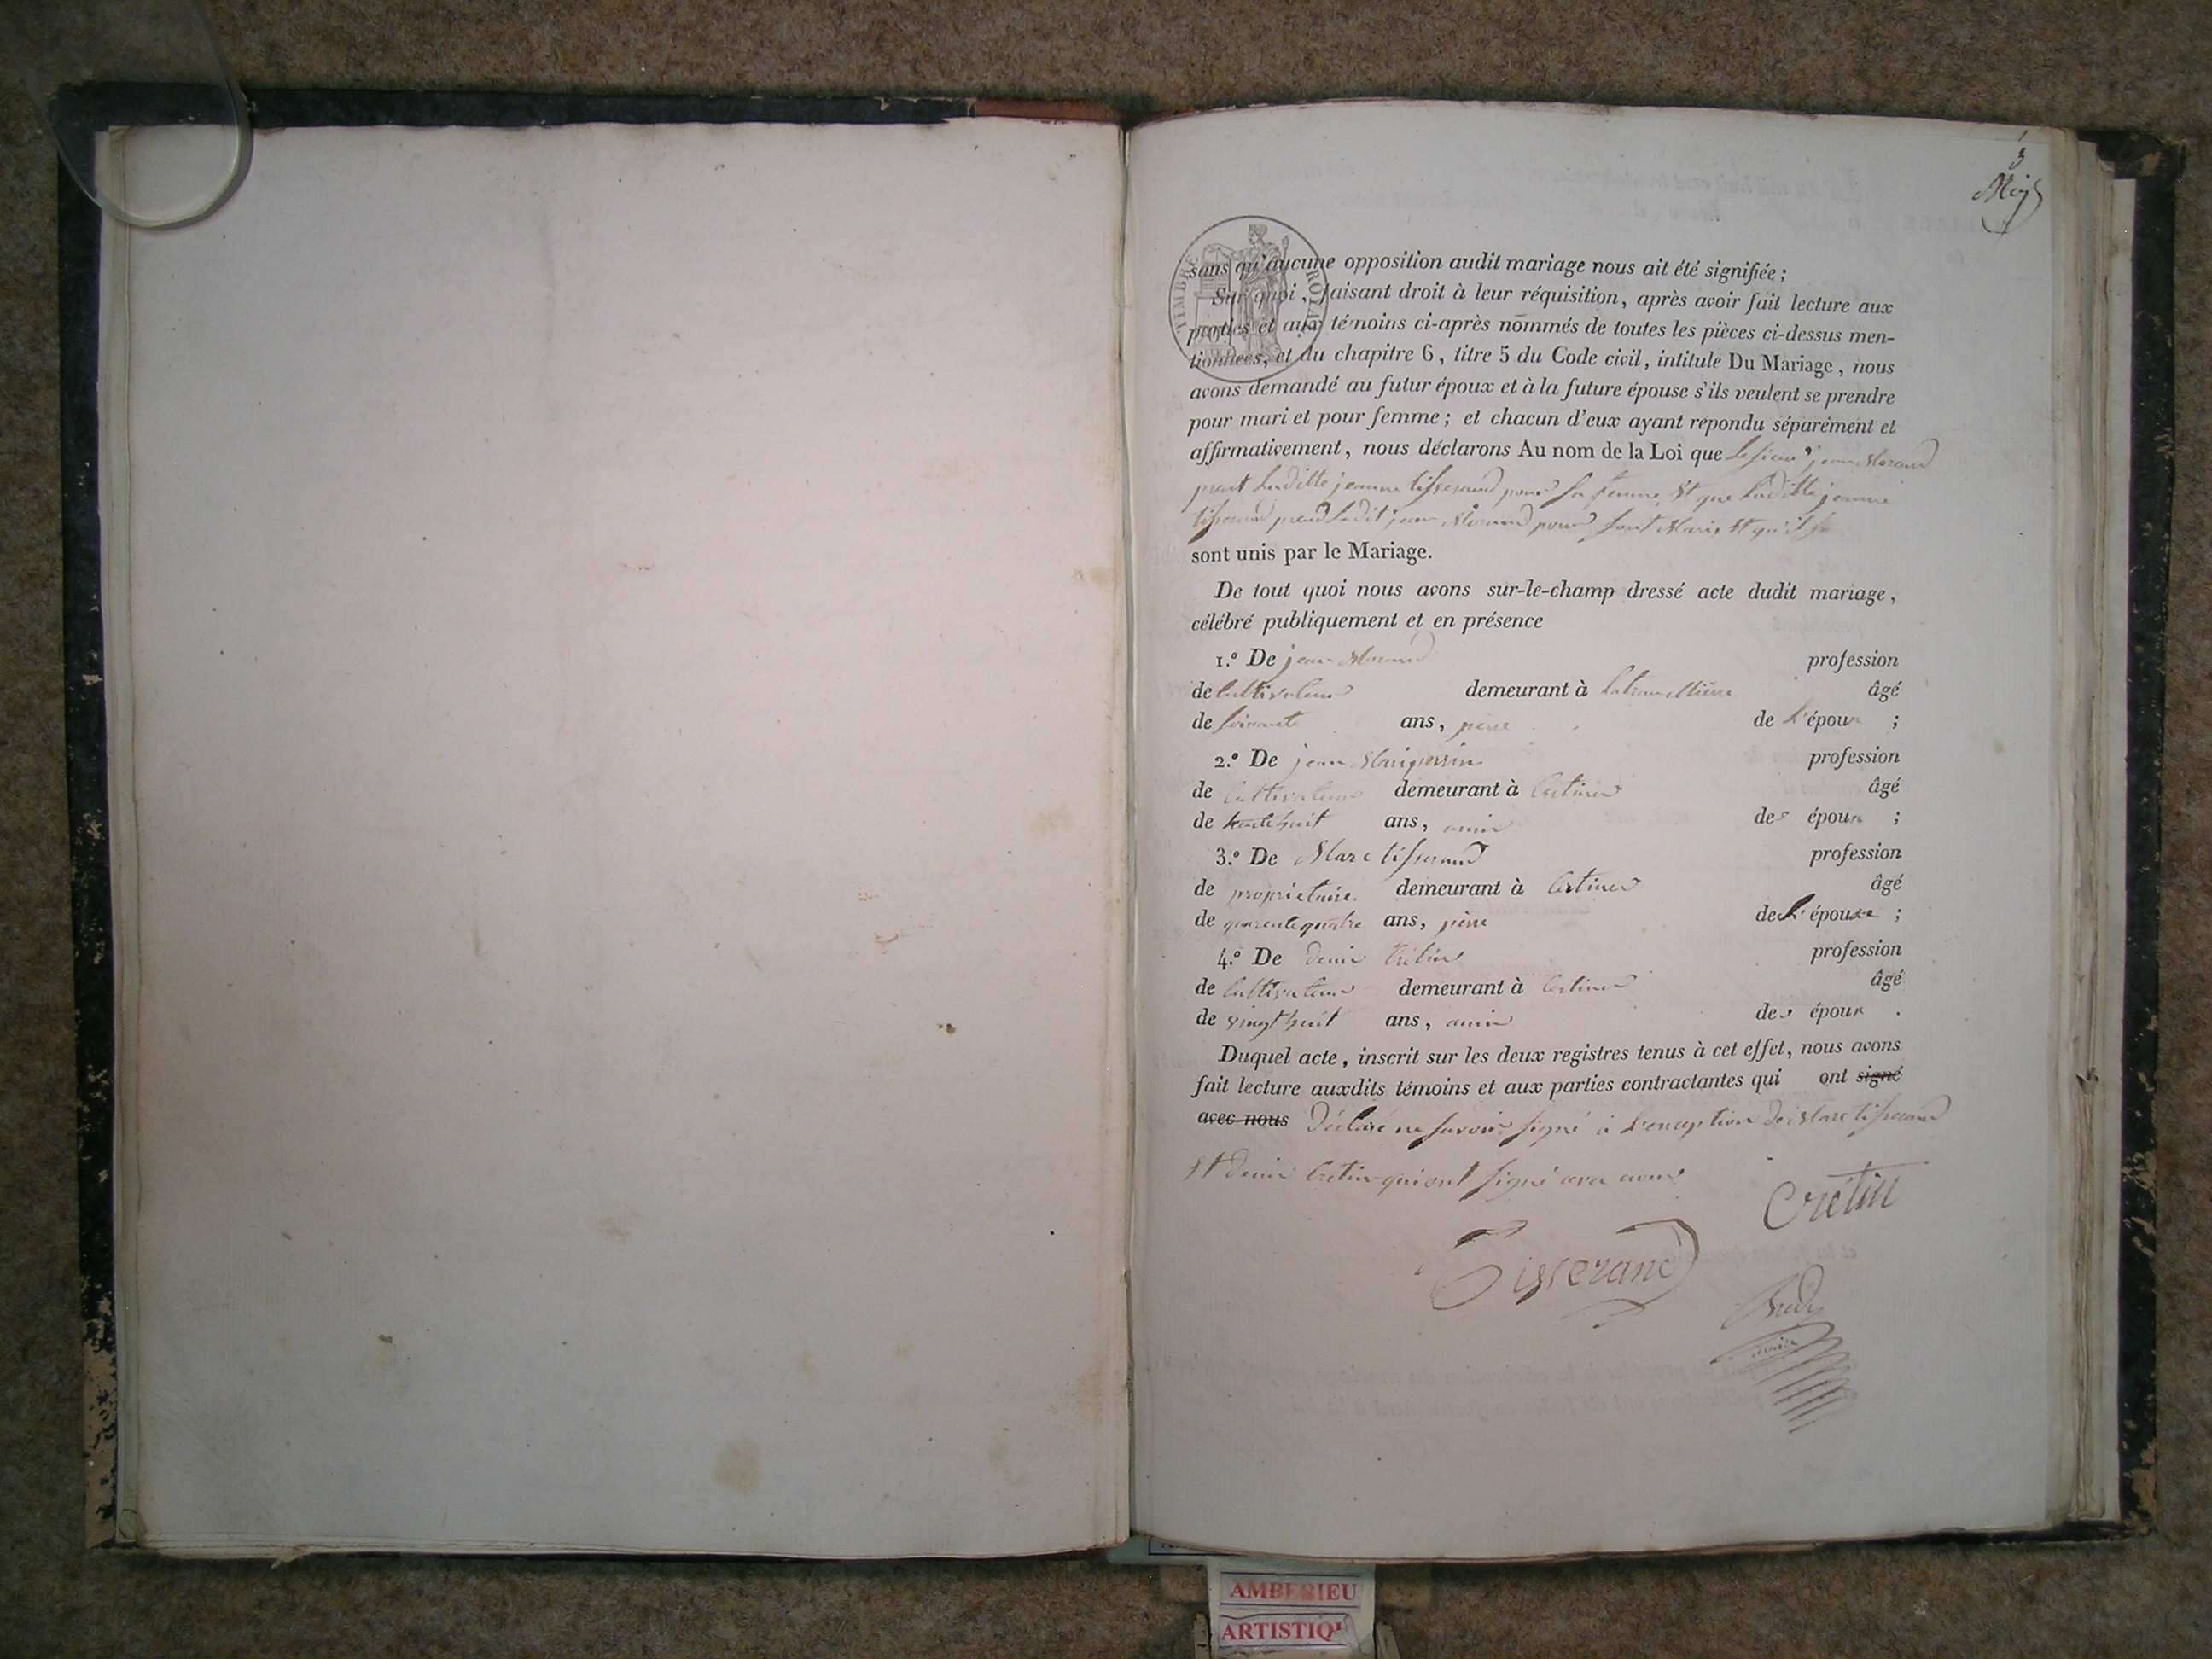 3
TIMBRE ROYAL
sans qu'aucune opposition audit mariage nous ait été signifiée ;
Sur quoi, faisant droit à leur réquisition, après avoir fait lecture aux
parties et aux témoins ci-après nommés de toutes les pièces ci-dessus men-
tionnées, et du chapitre 6, titre 5 du Code civil, intitule Du Mariage, nous
avons demandé au futur époux et à la future épouse s'ils veulent se prendre
pour mari et pour femme ; et chacun d'eux ayant répondu séparément et
affirmativement, nous déclarons Au nom de la Loi que le sieur jean Morand
prent laditte jeanne tisserand pour sa femme, et que laditte jeanne
tisserand prend ledit jean Morand pour sont Maris et qu'il se
sont unis par le Mariage.
De tout quoi nous avons sur-le-champ dressé acte dudit mariage,
célébré publiquement et en présence
1.º De jean Morand profession
de cultivateur demeurant à âgé
de soixante ans, père de l'époux ;
2.º De jean profession
de cultivateur demeurant à Certines âgé
de huit ans, amis des époux ;
3.º De Marc tisserand profession
de proprietaire demeurant à Certines âgé
de quarentequatre ans, père de l'épouse ;
4.º De denis Crétin profession
de cultivateur demeurant à Certines âgé
de vingthuit ans, amis des époux .
Duquel acte, inscrit sur les deux registres tenus à cet effet, nous avons
fait lecture auxdits témoins et aux parties contractantes qui ont signé
avec nous Déclaré ne savoir signé à l'exception de Marc tisserand
et denis Cretin qui ont signé avec nous
Crétin
Tisserand
AMBERIEU
ARTISTIQU